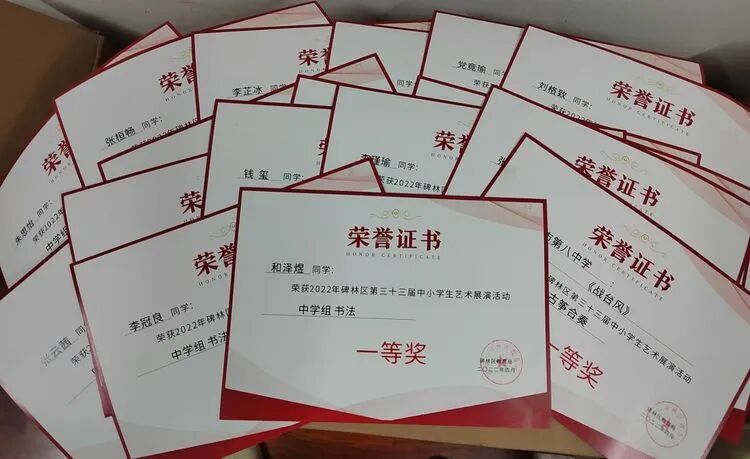 荣誉证书
HONOR CERTIFICATE
和泽煜 同学：
荣获2022年碑林区第三十三届中小学生艺术展演活动
中学组 书法
一等奖
碑林区教育局
二〇二二年四月
荣誉证书
HONOR CERTIFICATE
第八中学 ：
《战台风》
碑林区第三十三届中小学生艺术展演活动
古筝合奏
一等奖
荣誉证书
李冠良 同学：
荣获2022年碑林区
中学组 书法
张云茜 同学：
荣
钱玺 同学：
荣获2022年碑林区
瑾瑜 同学：
荣获2022年碑林区
朱思怡 同学：
荣获2022年
中学组
张桓畅 同学：
荣获2022年
荣誉证书
HONOR CERTIFICATE
李芷冰 同学：
党竟瑜 同学：
荣获2022年碑
刘格致 同学：
荣誉证书
HONOR CERTIFICATE